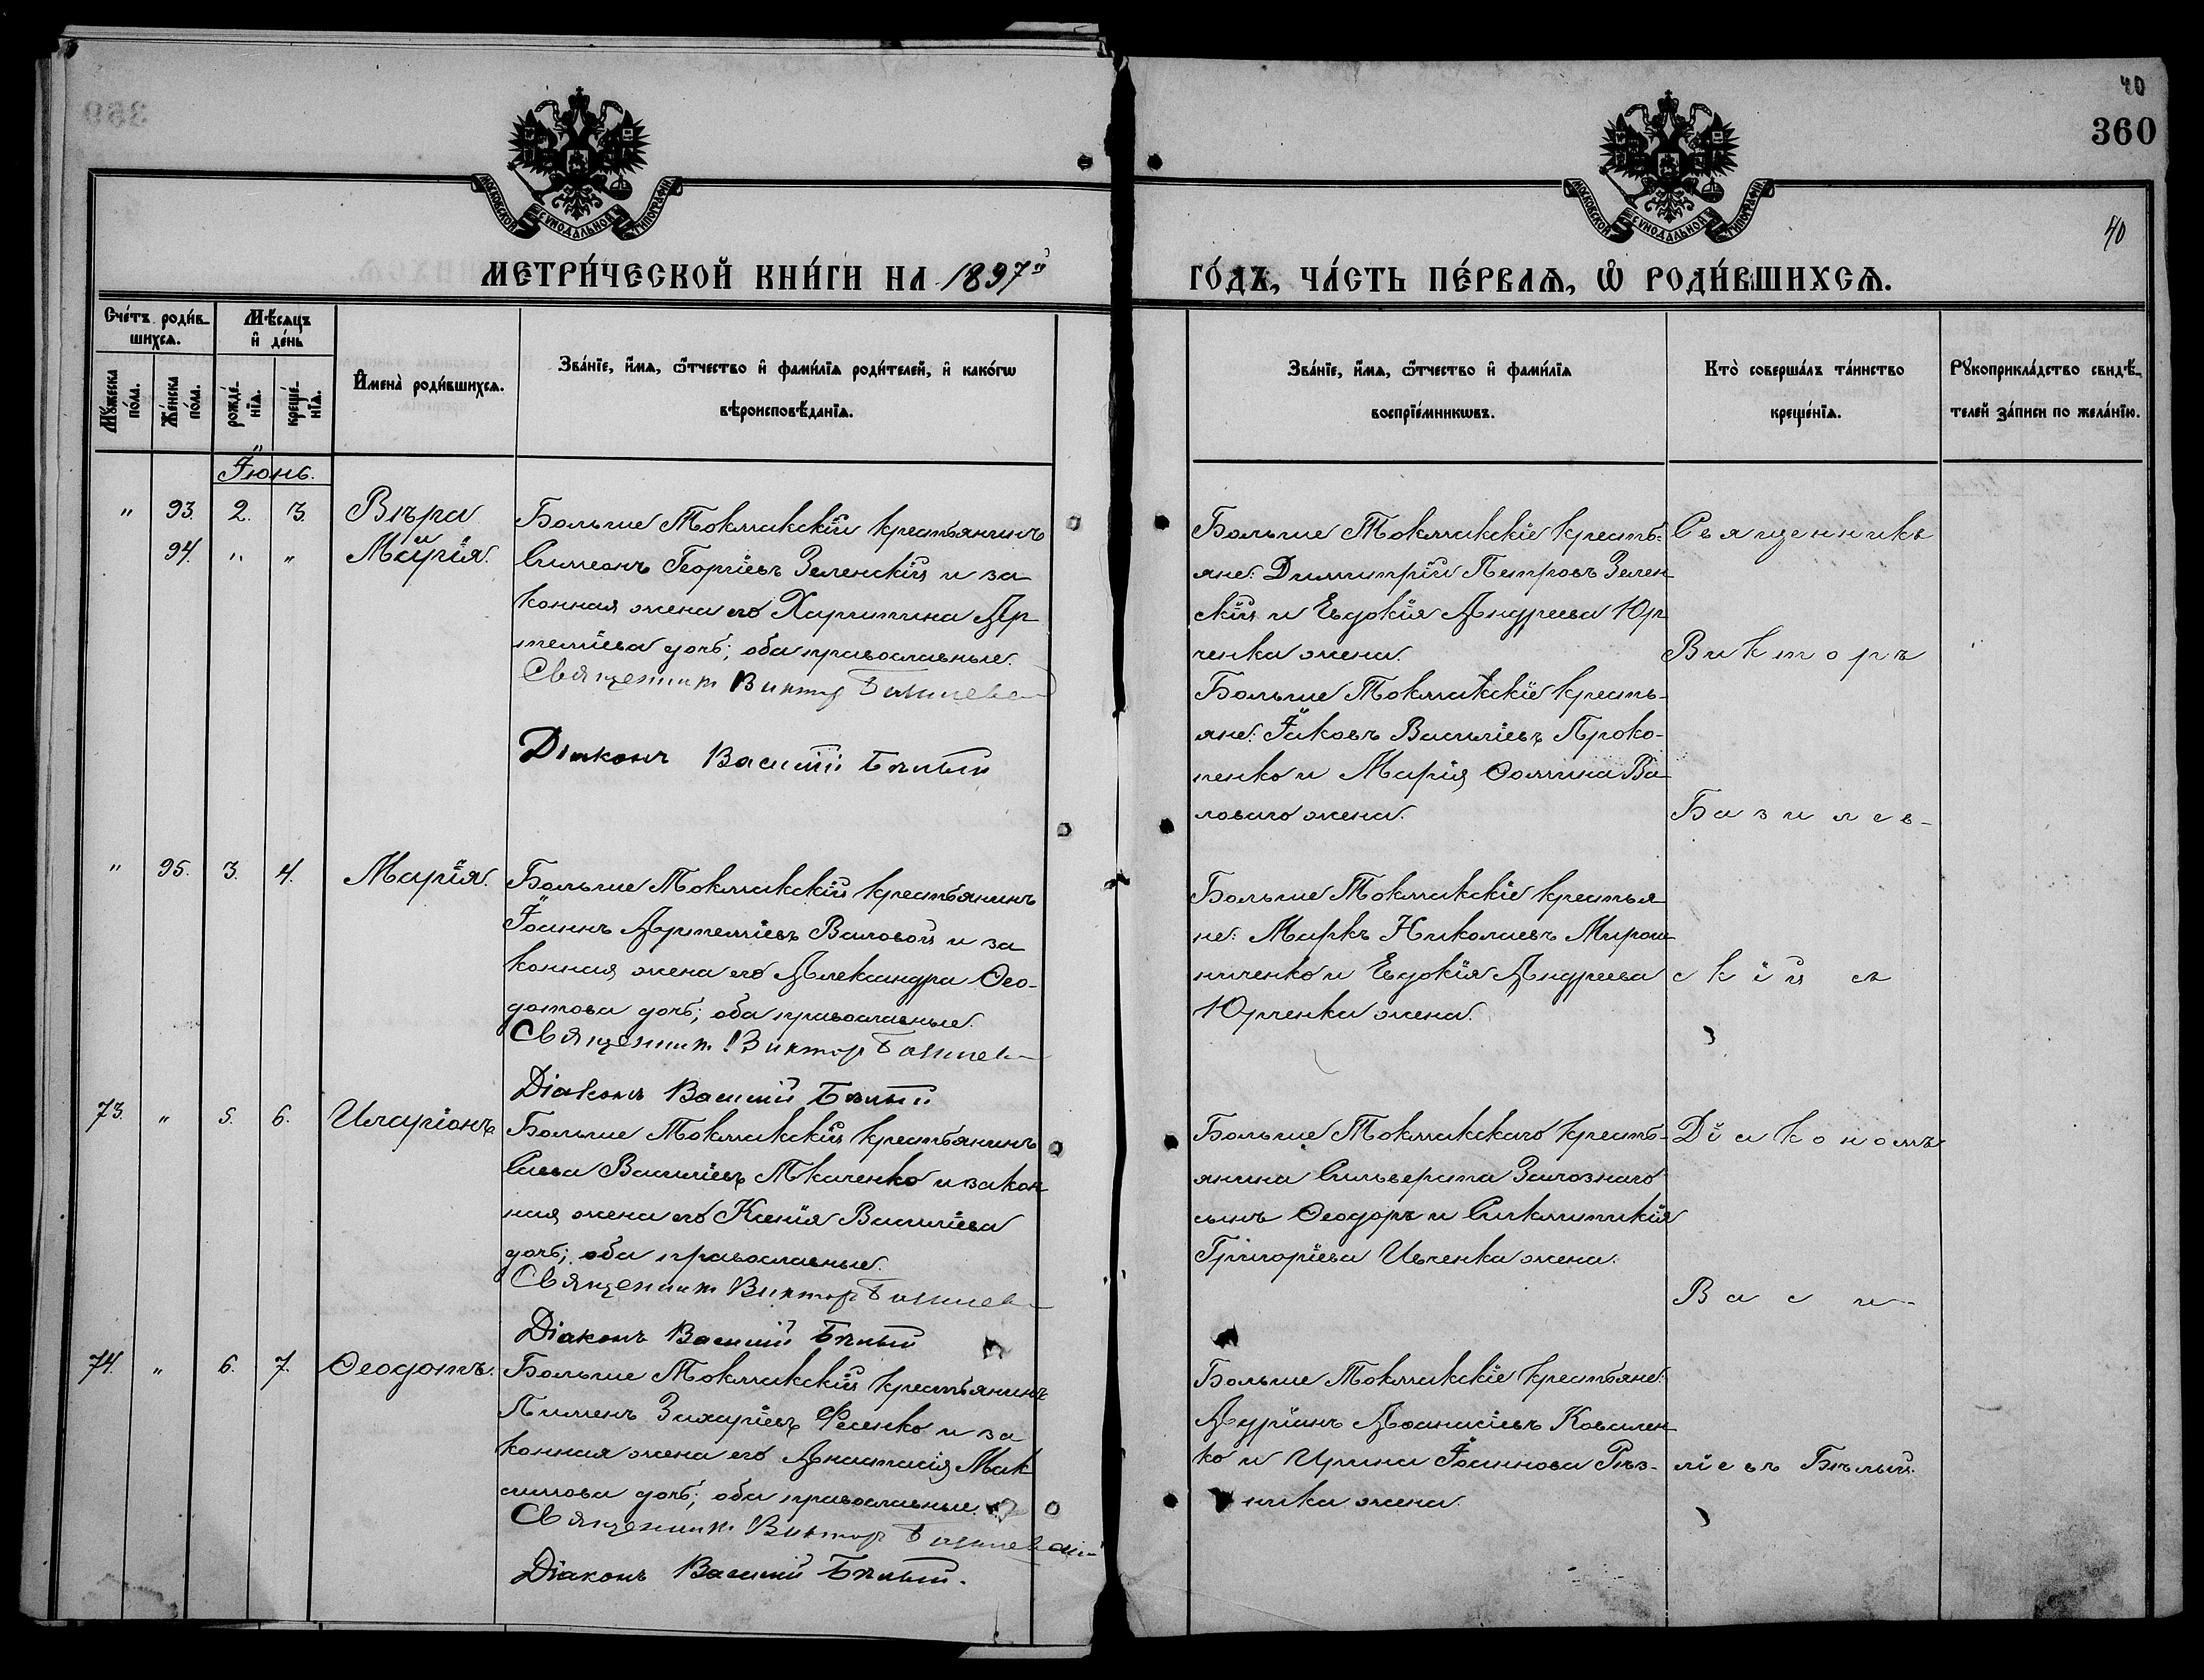 40
360
40
МОСКОВСКОЙ СѴНОДАЛЬНОЙ ТИПОГРАФІИ
МОСКОВСКОЙ СѴНОДАЛЬНОЙ ТИПОГРАФІИ
МЕТРИ́ЧЕСКОЙ КНИ́ГИ НА 1897й
ГО́ДЪ, ЧА́СТЬ ПЕ́РВАѦ, Ѡ҆ РОДИ́ВШИХСѦ.
Сче́тъ роди́в-
шихсѧ.
Мѣ́сѧцъ
и҆ де́нь
Мꙋ́жеска по́ла.
Же́нска по́ла.
рожде́-
нїѧ.
креще́-
нїѧ.
И҆мена̀ роди́вшихсѧ.
Зва́нїе, и҆́мѧ, ѻ҆́тчество и҆ фами́лїѧ роди́телей, и҆ како́гѡ
вѣроисповѣ́данїѧ.
Зва́нїе, и҆́мѧ, ѻ҆́тчество и҆ фами́лїѧ
воспрїе́мникѡвъ.
Кто̀ соверша́лъ та́инство
креще́нїѧ.
Рꙋкоприкла́дство свидѣ́-
телей за́писи по жела́нїю.
Іюнь.
" 93. 2. 3. Вѣра
94. " " Марія.
Больше Токмакскій крестьянинъ
Симеонъ Георгіевъ Зеленскій и за
конная жена его Харитина Ар
теміева дочь; оба православные.
Священникъ Виктор Базилев
Діаконъ Василій Бѣлый
Больше Токмакскіе кресть-
яне: Димитрій Петровъ Зелен
скій и Евдокія Андреева Юр
ченка жена.
Больше Токмакскіе кресть-
яне: Іаковъ Василіевъ Проко-
пенко и Марія Ѳомина Ва
ловаго жена.
Священникъ
Викторъ
Базилев-
" 95. 3. 4. Марія.
Больше Токмакскій крестьянинъ
Іоаннъ Артеміевъ Валовой и за
конная жена его Александра Ѳео-
дотова дочь; оба православные.
Священникъ Виктор Базилев
Діаконъ Василій Бѣлый
Больше Токмакскіе крестья
не: Маркъ Николаевъ Мирош
ниченко и Евдокія Андреева
Юрченка жена.
скій съ
73. " 5. 6. Иларіонъ
Больше Токмакскій крестьянинъ
Савва Василіевъ Ткаченко и закон
ная жена его Ксенія Василіева
дочь; оба православные.
Священникъ Виктор Базилев
Діаконъ Василій Бѣлый
Больше Токмакскаго кресть-
янина Сильверста Залознаго
сынъ Ѳеодоръ и Синклитикія
Григоріева Ивченка жена.
Діакономъ
Васи-
74. " 6. 7. Ѳеодотъ.
Больше Токмакскій крестьянинъ
Пименъ Захаріевъ Фесенко и за
конная жена его Анастасія Мак
симова дочь; оба православные.
Священникъ Виктор Базилевскій
Діаконъ Василій Бѣлый.
Больше Токмакскіе крестьяне:
Адріанъ Аѳанасіевъ Ковален
ко и Ирина Іоаннова Рѣз-
ника жена.
ліевъ Бѣлый.